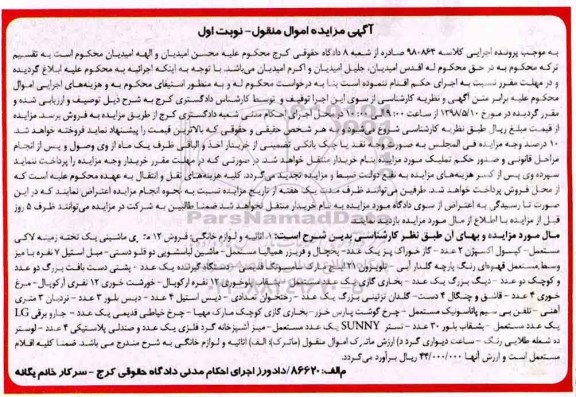 آگهی مزایده اموال منقول- نوبت اول
به موجب پرونده اجرایی کلاسه ۹۸۰۸۶۳ صادره از شعبه ۸ دادگاه حقوقی کرج محکوم علیه محسن امیدیان و الهه امیدیان محکوم است به تقسیم
ترکه محکوم به در حق محکوم له اقدس امیدیان، جلیل امیدیان و اکرم امیدیان می‌باشد. با توجه به اینکه اجرائیه به محکوم علیه ابلاغ گردیده
و در مهلت مقرر نسبت به اجرای حکم اقدام ننموده است بنا به درخواست محکوم له و به منظور استیفای محکوم به و هزینه‌های اجرایی اموال
محکوم علیه برابر متن آگهی و نظریه کارشناسی از سوی این اجرا توقیف و توسط کارشناس دادگستری کرج به شرح ذیل توصیف و ارزیابی شده و
مقرر گردیده در مورخ ۱۳۹۸/۵/۱۰ از ساعت ۹:۰۰ الی ۱۰:۰۰ در محل اجرای احکام مدنی شعبه دادگستری کرج از طریق مزایده به فروش برسد. مزایده
از قیمت مبلغ ریال طبق نظریه کارشناسی شروع می‌شود و به هر شخص حقیقی و حقوقی که بالاترین قیمت را پیشنهاد نماید فروخته خواهد شد.
۱۰ درصد وجه مزایده فی المجلس به صورت وجه نقد یا چک بانکی تضمینی از خریدار اخذ و الباقی ظرف یک ماه از وی وصول و پس از انجام
مراحل قانونی و صدور حکم تملیک مورد مزایده بنام خریدار منتقل خواهد شد. در صورتی که در مهلت مقرر خریدار وجه مزایده را پرداخت ننماید
سپرده وی پس از کسر هزینه‌های مزایده به نفع دولت ضبط و مزایده تجدید می‌گردد. کلیه هزینه‌های نقل و انتقال به عهده محکوم علیه است که
از محل فروش پرداخت خواهد شد. طرفین می‌توانند ظرف مدت یک هفته از تاریخ مزایده نسبت به نحوه انجام مزایده اعتراض نمایند که در این
صورت تا رسیدگی به اعتراض از سوی دادگاه مورد مزایده به نام خریدار منتقل نخواهد شد. ضمنا طالبین به شرکت در مزایده می‌توانند ظرف ۵ روز
قبل از مزایده با اطلاع از مال مورد مزایده بازدید
مال مورد مزایده و بهای آن طبق نظر کارشناسی بدین شرح است: ۱. اثاثیه و لوازم خانگی: فروش ۱۲ ماشینی یک تخته زمینه لاکی
مستعمل- کپسول اکسژن ۲ عدد- گاز خوراک پز یک عدد- یخچال و فریزر همیالسا مستعمل- ماشین لباسشویی دو قلو دستی- مبل استیل ۷ نفره با میز
وسط مستعمل قهوه‌ای رنگ پارچه گلدار آبی- تلویزیون ۲۱ اینچ پارک سامسونگ قدیمی- دستگاه گیرنده یک عدد- پشتی دست بافت بزرگ دو عدد
و کوچک دو عدد- دیگ بزرگ یک عدد- بخاری گازی یک عدد مستعمل- بشقاب پلوخوری ۱۲ نفره آرکوپال- خورشت خوری ۱۲ نفری آرکوپال- مرغ
خوری ۴ عدد- قاشق و چنگال ۴ دست- گلدان تزئینی بزرگ یک عدد- رختخواب نمدادی- دیس استیل ۴ عدد- دیس بلور ۳ عدد- نردبان ۳ متری
آهنی- تلفن بی سیم پاناسونیک مستعمل- چرخ گوشت پارس خزر- بخاری گازی کوچک مارک مهیا- چرخ خیاطی قدیمی یک عدد- جارو برقی LG
یک عدد مستعمل- بشقاب بلور ۳۰ عدد- تستر SUNNY یک عدد مستعمل- میز آشپزخانه گرد فلزی یک عدد و صندلی پلاستیکی ۴ عدد- لوستر
ده شعله طلایی رنگ- ساعت دیواری گرد د) ارزش ماترک اموال منقول (ماترک): الف) اثاثیه و لوازم خانگی به شرح مندرج می باشد. ضمنا کلیه اقلام
مستعمل است و ارزش آنها ۴۴/۰۰۰/۰۰۰ ریال برآورد می‌گردد.
م‌الف: ۸۶۶۲۰/دادورز اجرای احکام مدنی دادگاه حقوقی کرج- سرکار خانم یگانه
ParsNamadData